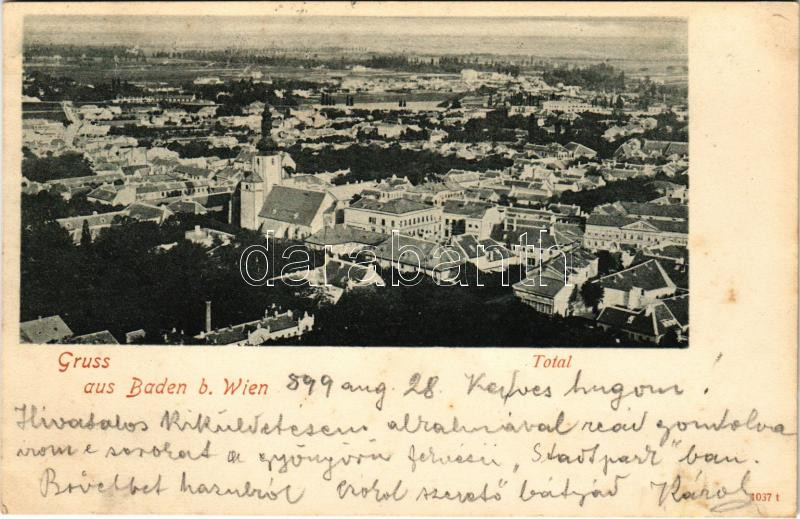 darabanth
Gruss
aus Baden b. Wien
Total
899 aug. 28. Kedves hugom!
Hivatalos kiküldetésem alkalmával reád gondolva
irom e sorokat a gyönyörü fekvésü „Stadtpark" ban.
Bővebbet hazulról csókol szerető bátyád Károly
1037 t